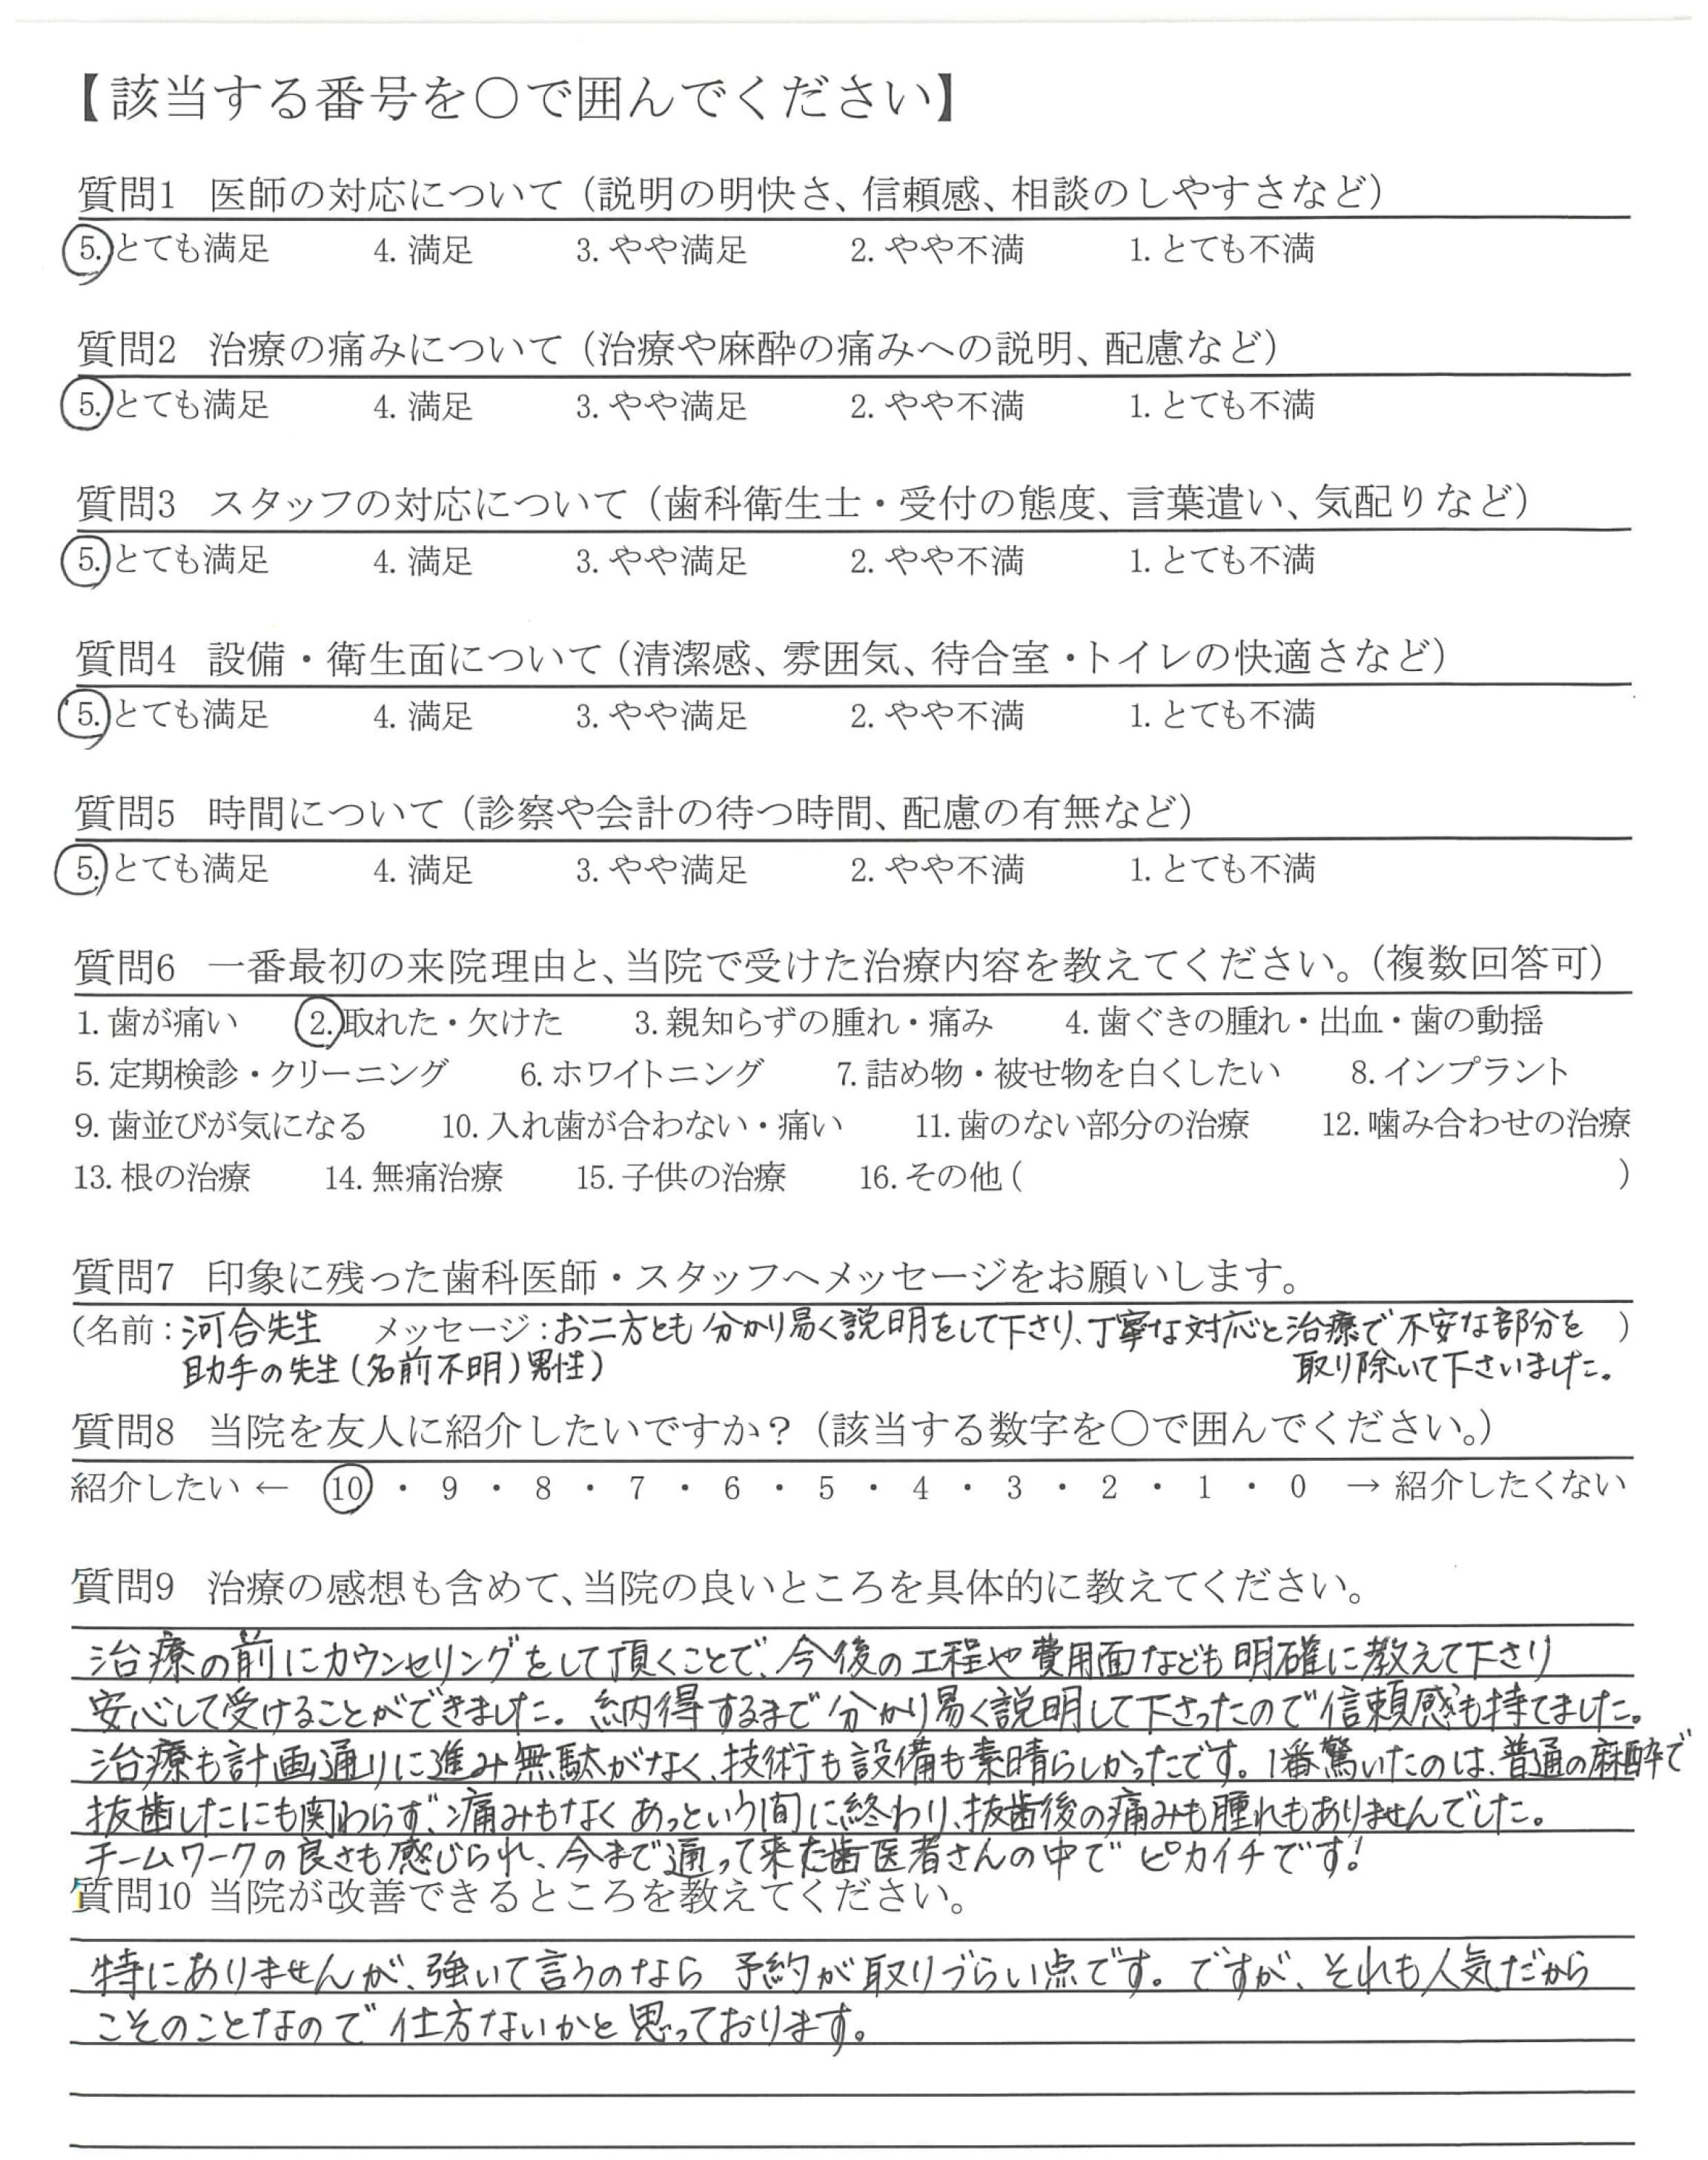 【該当する番号を○で囲んでください】
質問1 医師の対応について（説明の明快さ、信頼感、相談のしやすさなど）
5. とても満足 4. 満足 3. やや満足 2. やや不満 1. とても不満
質問2 治療の痛みについて（治療や麻酔の痛みへの説明、配慮など）
5. とても満足 4. 満足 3. やや満足 2. やや不満 1. とても不満
質問3 スタッフの対応について（歯科衛生士・受付の態度、言葉遣い、気配りなど）
5. とても満足 4. 満足 3. やや満足 2. やや不満 1. とても不満
質問4 設備・衛生面について（清潔感、雰囲気、待合室・トイレの快適さなど）
5. とても満足 4. 満足 3. やや満足 2. やや不満 1. とても不満
質問5 時間について（診察や会計の待つ時間、配慮の有無など）
5. とても満足 4. 満足 3. やや満足 2. やや不満 1. とても不満
質問6 一番最初の来院理由と、当院で受けた治療内容を教えてください。（複数回答可）
1. 歯が痛い 2. 取れた・欠けた 3. 親知らずの腫れ・痛み 4. 歯ぐきの腫れ・出血・歯の動揺
5. 定期検診・クリーニング 6. ホワイトニング 7. 詰め物・被せ物を白くしたい 8. インプラント
9. 歯並びが気になる 10. 入れ歯が合わない・痛い 11. 歯のない部分の治療 12. 噛み合わせの治療
13. 根の治療 14. 無痛治療 15. 子供の治療 16. その他（ ）
質問7 印象に残った歯科医師・スタッフへメッセージをお願いします。
（名前：河合先生 メッセージ：お二方とも分かり易く説明をして下さり、丁寧な対応と治療で不安な部分を ）
助手の先生（名前不明）男性） 取り除いて下さいました。
質問8 当院を友人に紹介したいですか？（該当する数字を○で囲んでください。）
紹介したい ← 10 ・ 9 ・ 8 ・ 7 ・ 6 ・ 5 ・ 4 ・ 3 ・ 2 ・ 1 ・ 0 → 紹介したくない
質問9 治療の感想も含めて、当院の良いところを具体的に教えてください。
治療の前にカウンセリングをして頂くことで、今後の工程や費用面なども明確に教えて下さり
安心して受けることができました。納得するまで分かり易く説明して下さったので信頼感も持てました。
治療も計画通りに進み無駄がなく、技術も設備も素晴らしかったです。1番驚いたのは、普通の麻酔で
抜歯したにも関わらず、痛みもなくあっという間に終わり、抜歯後の痛みも腫れもありませんでした。
チームワークの良さも感じられ、今まで通って来た歯医者さんの中でピカイチです!
質問10 当院が改善できるところを教えてください。
特にありませんが、強いて言うのなら 予約が取りづらい点です。ですが、それも人気だから
こそのことなので仕方ないかと思っております。